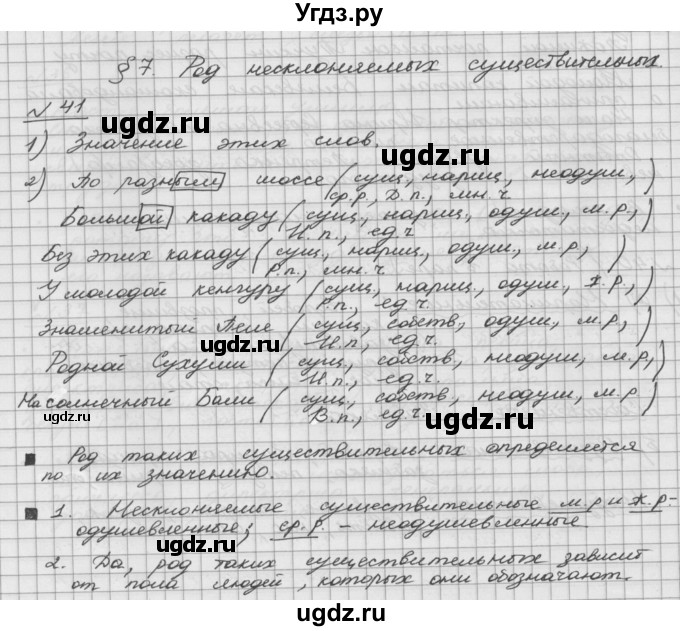 Угдз.ру
§ 7. Род несклоняемых существительных.
№ 41
ugdz.ru
1) Значение этих слов.
ugdz.ru
2) По разным шоссе (сущ., нариц., неодуш.,
ср.р., Д.п., мн.ч.)
Большой какаду (сущ., нариц., одуш., м.р.,
И.п., ед.ч.)
ugdz.ru
Без этих какаду (сущ., нариц., одуш., м.р.,
Р.п., мн.ч.)
У молодой кенгуру (сущ., нариц., одуш., ж.р.,
Р.п., ед.ч.)
ugdz.ru
Знаменитый Пеле (сущ., собств., одуш., м.р.,
И.п., ед.ч.)
ugdz.ru
Родной Сухуми (сущ., собств., неодуш., м.р.,
И.п., ед.ч.)
На солнечный Бали (сущ., собств., неодуш., м.р.
В.п., ед.ч.)
ugdz.ru
ugdz.ru
Род таких существительных определяется
по их значению.
ugdz.ru
1. Несклоняемые существительные м.р и ж.р-
одушевленные; ср.р. - неодушевленные.
ugdz.ru
ugdz.ru
2. Да, род таких существительных зависит
от пола людей, которых они обозначают.
ugdz.ru